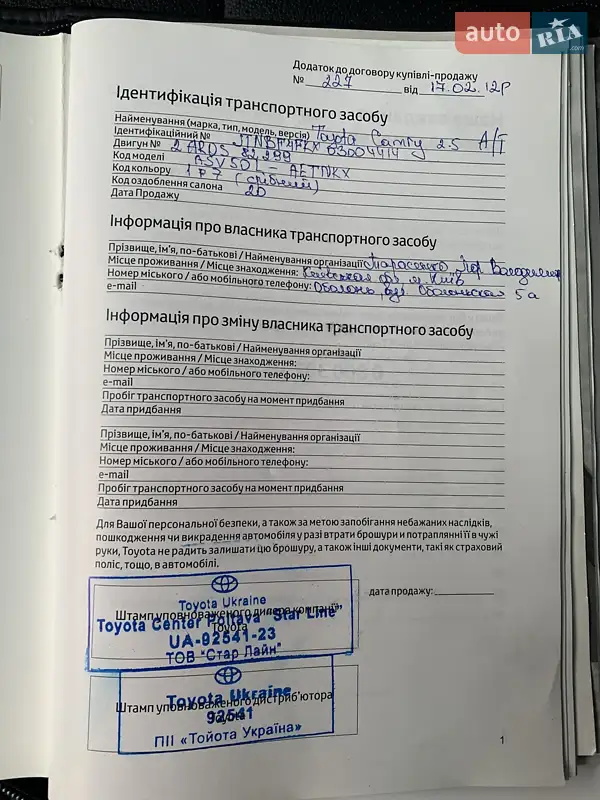 auto RIA.com
Додаток до договору купівлі-продажу
№ 227 від 17.02.12р
Ідентифікація транспортного засобу
Найменування (марка, тип, модель, версія) Toyota Camry 2.5 A/T
Ідентифікаційний № JTNBF4FKX03004414
Двигун № 2ARD532299
Код моделі ASV50L-AETNKX
Код кольору 1F7 (срібний)
Код оздоблення салона 20
Дата Продажу
Інформація про власника транспортного засобу
Прізвище, ім'я, по-батькові / Найменування організації Тарасенко
Місце проживання / Місце знаходження: Київська обл. м. Київ
Номер міського / або мобільного телефону: Оболонь, вул. Оболонская 5а
e-mail
Інформація про зміну власника транспортного засобу
Прізвище, ім'я, по-батькові / Найменування організації
Місце проживання / Місце знаходження:
Номер міського / або мобільного телефону:
e-mail
Пробіг транспортного засобу на момент придбання
Дата придбання
Прізвище, ім'я, по-батькові / Найменування організації
Місце проживання / Місце знаходження:
Номер міського / або мобільного телефону:
e-mail
Пробіг транспортного засобу на момент придбання
Дата придбання
Для Вашої персональної безпеки, а також за метою запобігання небажаних наслідків,
пошкодження чи викрадення автомобіля у разі втрати брошури и потраплянні її в чужі
руки, Toyota не радить залишати цю брошуру, а також інші документи, такі як страховий
поліс, тощо, в автомобілі.
дата продажу:
Toyota Ukraine
Штамп уповноваженого дилера компанії
Toyota Center Poltava "Star Line"
Toyota
UA-92541-23
ТОВ "Стар Лайн"
Toyota Ukraine
Штамп уповноваженого дистриб'ютора
92541
Toyota
ПІІ «Тойота Україна»
1